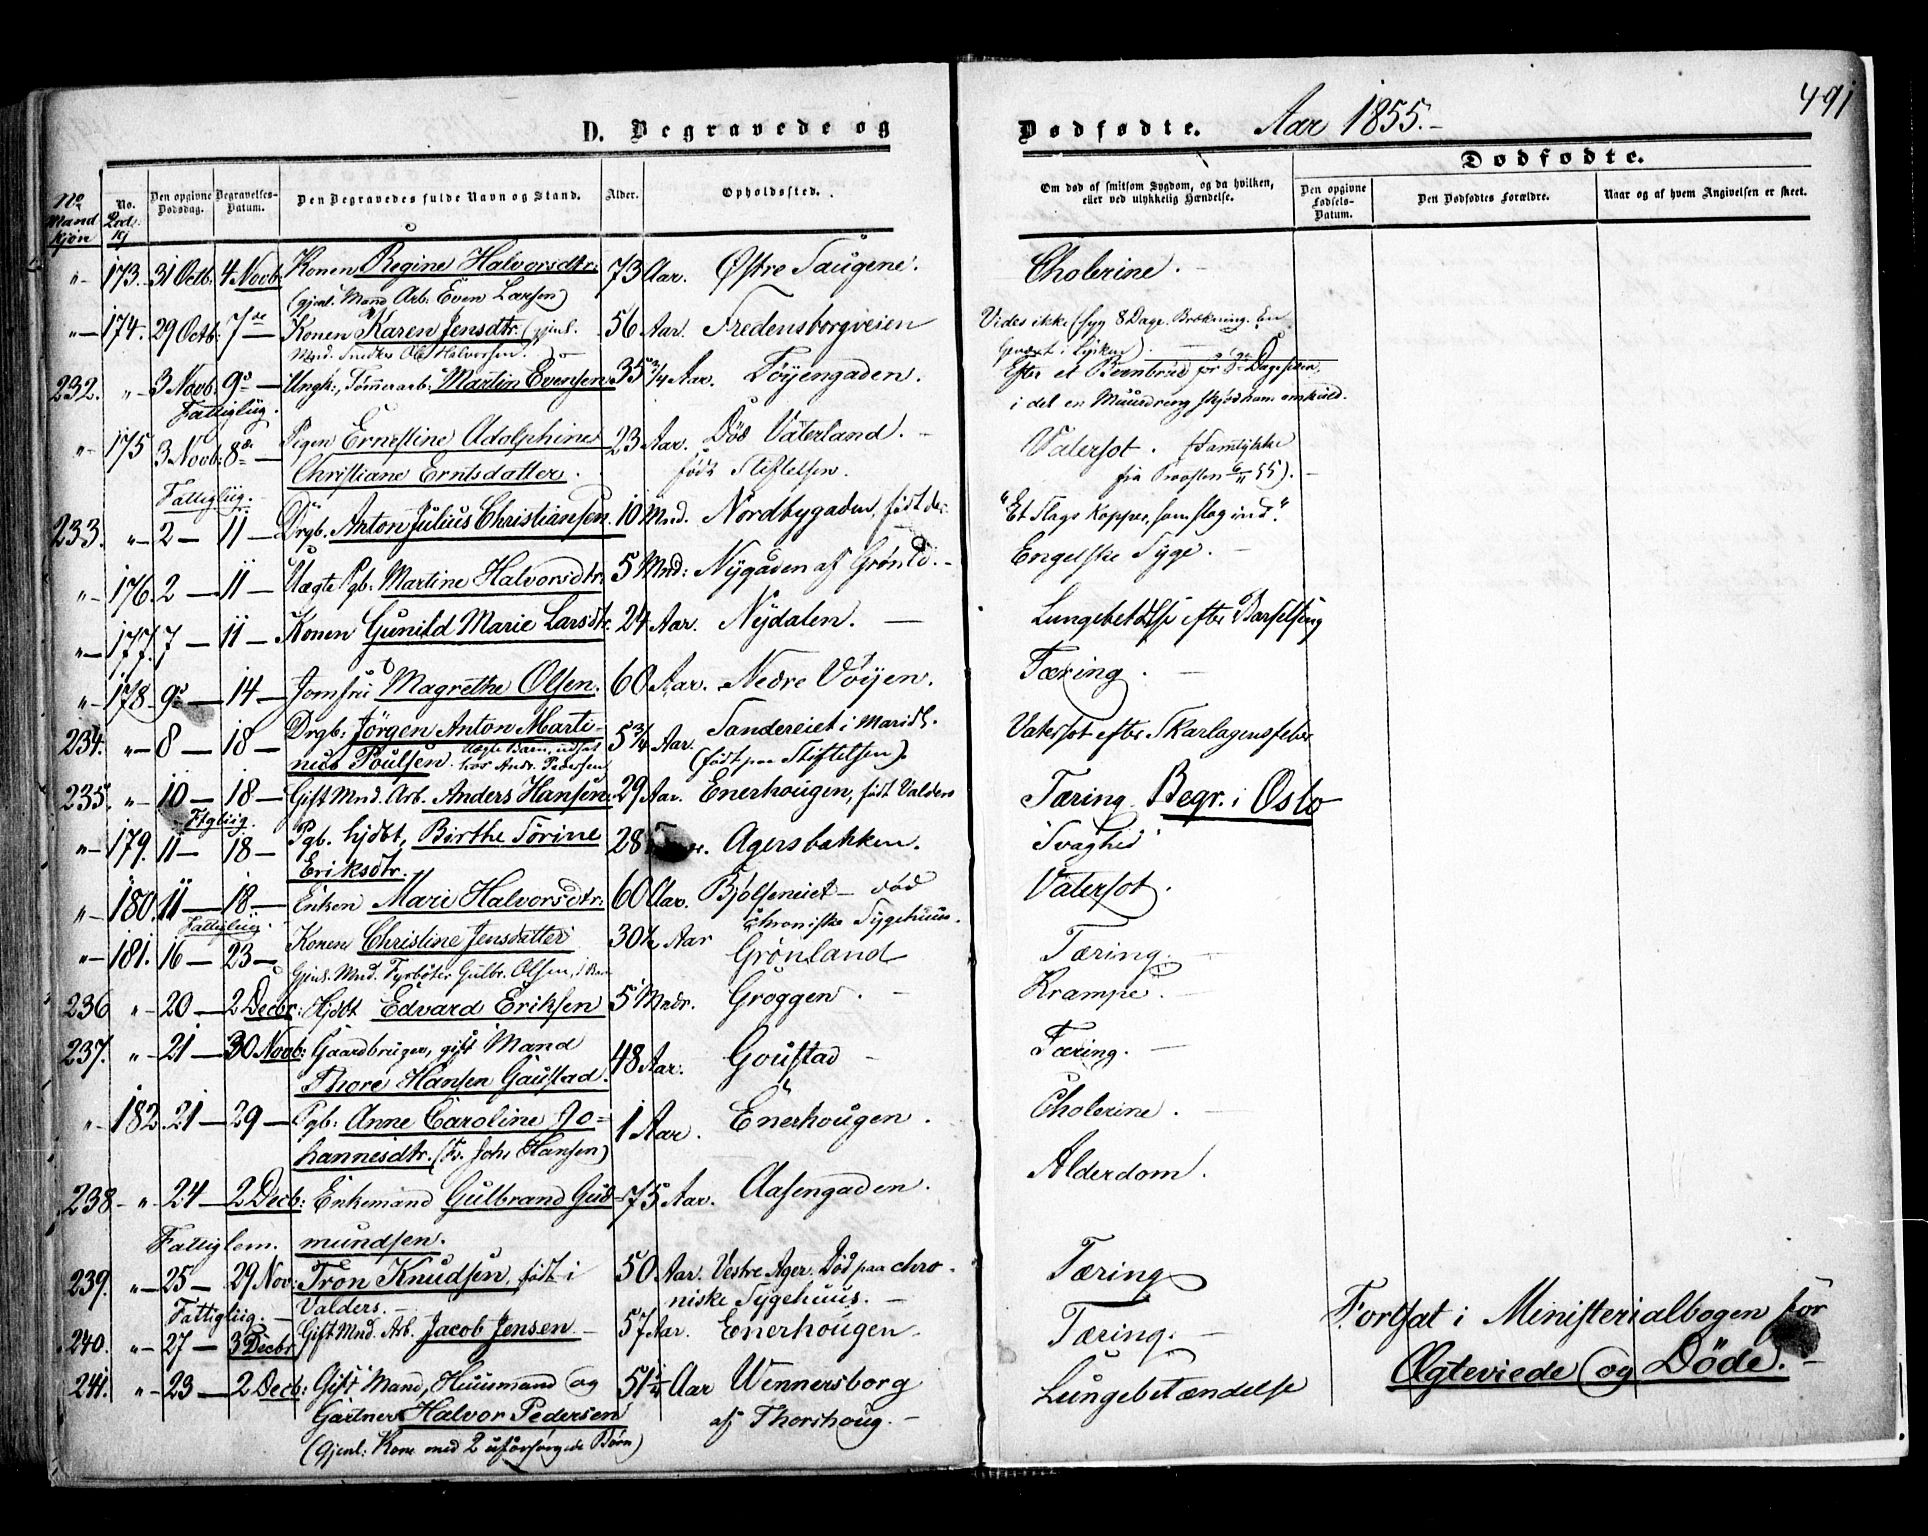 D. Begravede og Dødfødte. Aar 1855.-
491
Dødfødte.
No Mandkjøn
No.
Den opgivne Dødsdag.
Begravelses-Datum.
Den Begravedes fulde Navn og Stand.
Alder.
Opholdssted.
Om død af smitsom Sygdom, og da hvilken, eller ved ulykkelig Hændelse.
Den opgivne Fødsels-Datum.
Den Dødfødtes Forældre.
Naar og af hvem Angivelsen er skeet.
"- 173. 31 Octb: 4 Novb: Konen Regine Halvorsdtr: 73 Aar. Østre Saugene. Cholerine.
(gjenl. Mand Arb. Even Larsen)
"- 174. 29 Octb: 7de - Konen Karen Jensdtr. (gjenl. 56 Aar. Fredensborgveien Vides ikke (syg 8 Dage. Brækning. En
Mnd. Snedker Ole Halvorsen.)
232. "- 3 Novb: 9de - Ungk., Tømmerarb. Martin Evensen 35 3/4 Aar. Töyengaden. Efter et Beenbrud for 8te Dage siden
Fattiglig. i det en Muurdreng skjød ham omkuld.
"- 175 3 Novb: 8de - Pigen Ernestine Adolphine 23 Aar. Död Vaterland. - Vatersot. (Samtykke
Christiane Erntsdatter. født Stiftelsen. fra Provsten 6/11 55).
Fattiglig.
233. "- 2 - 11 - Drgb. Anton Julius Christiansen. 10 Mnd. Nordbygaden, født der. "Et Slags Kopper, som slog ind".
"- 176. 2 - 11 - Uægte Pgb. Martine Halvorsdtr. 5 Mnd: Nygaden af Grønld. - Engelske Syge. -
"- 177. 7 - 11 - Konen Gunild Marie Larsdtr. 24 Aar. Nydalen. - Lungebetdlse efter Barselseng
"- 178. 9de - 14 - Jomfru Magrethe Olsen. 60 Aar. Nedre Vöyen. Tæring. -
234. "- 8 - 18 - Drgb: Jörgen Anton Marti- 5 3/4 Aar. Sandereiet i Maridl. Vatersot efter Skarlagensfeber
nus Poulsen. Uægte Barn, udsat hos Andr. Pedersen (født paa Stiftelsen).
235. "- 10 - 18 - Gift Mnd. Arb. Anders Hansen: 29 Aar. Enerhougen, født Valders Tæring. Begr. i Oslo
Ftglig.
"- 179. 11 - 18 - Pgb. hjdbt, Birthe Sörine 28 Agersbakken. Svaghed
Eriksdtr.
"- 180. 11 - 18 - Enken Mari Halvorsdtr. 60 Aar. Bjølseneiet - død Vatersot.
Fattiglig. chroniske Sygehuus.
"- 181. 16 - 23 - Konen Christine Jensdatter 30 1/2 Aar Grønland Tæring. -
Gjenl. Mnd. Fyrbøter Gulbr. Olsen,
236 "- 20 - 2 Decbr: Hjdt Edvard Eriksen 5 Mndr. Groggen. - Krampe. -
237. "- 21 - 30 Novb: Gaardbruger, gift Mand 48 Aar. Goustad - Tæring. -
Thore Hansen Gaustad.
"- 182. 21 - 29 - Pgb: Anne Caroline Jo- 1 Aar. Enerhougen. Cholerine. -
hannesdtr. (Fr. Johs Hansen)
238 - "- 24 - 2 Decb: Enkemand Gulbrand Gud- 75 Aar. Aasengaden. Alderdom.
Fattiglem. mundsen.
239. "- 25 - 29 Nov: Tron Knudsen, født i 50 Aar. Vestre Ager. Död paa chro- Tæring
Fattiglig. - Valders. - niske Sygehuus. -
240. "- 27 - 3 Decbr Gift Mnd. Arb. Jacob Jensen - 57 Aar. Enerhougen. Tæring. -
241. "- 23 - 2 Decb: Gift Mand, Huusmand og 51 1/4 Aar Wennersborg Lungebetændelse
Gartner Halvor Pedersen af Thorshoug. -
(Gjenl: Kone med 2 uforsørgede Børn)
Fortsat i Ministerialbogen for
Ægteviede og Døde. -